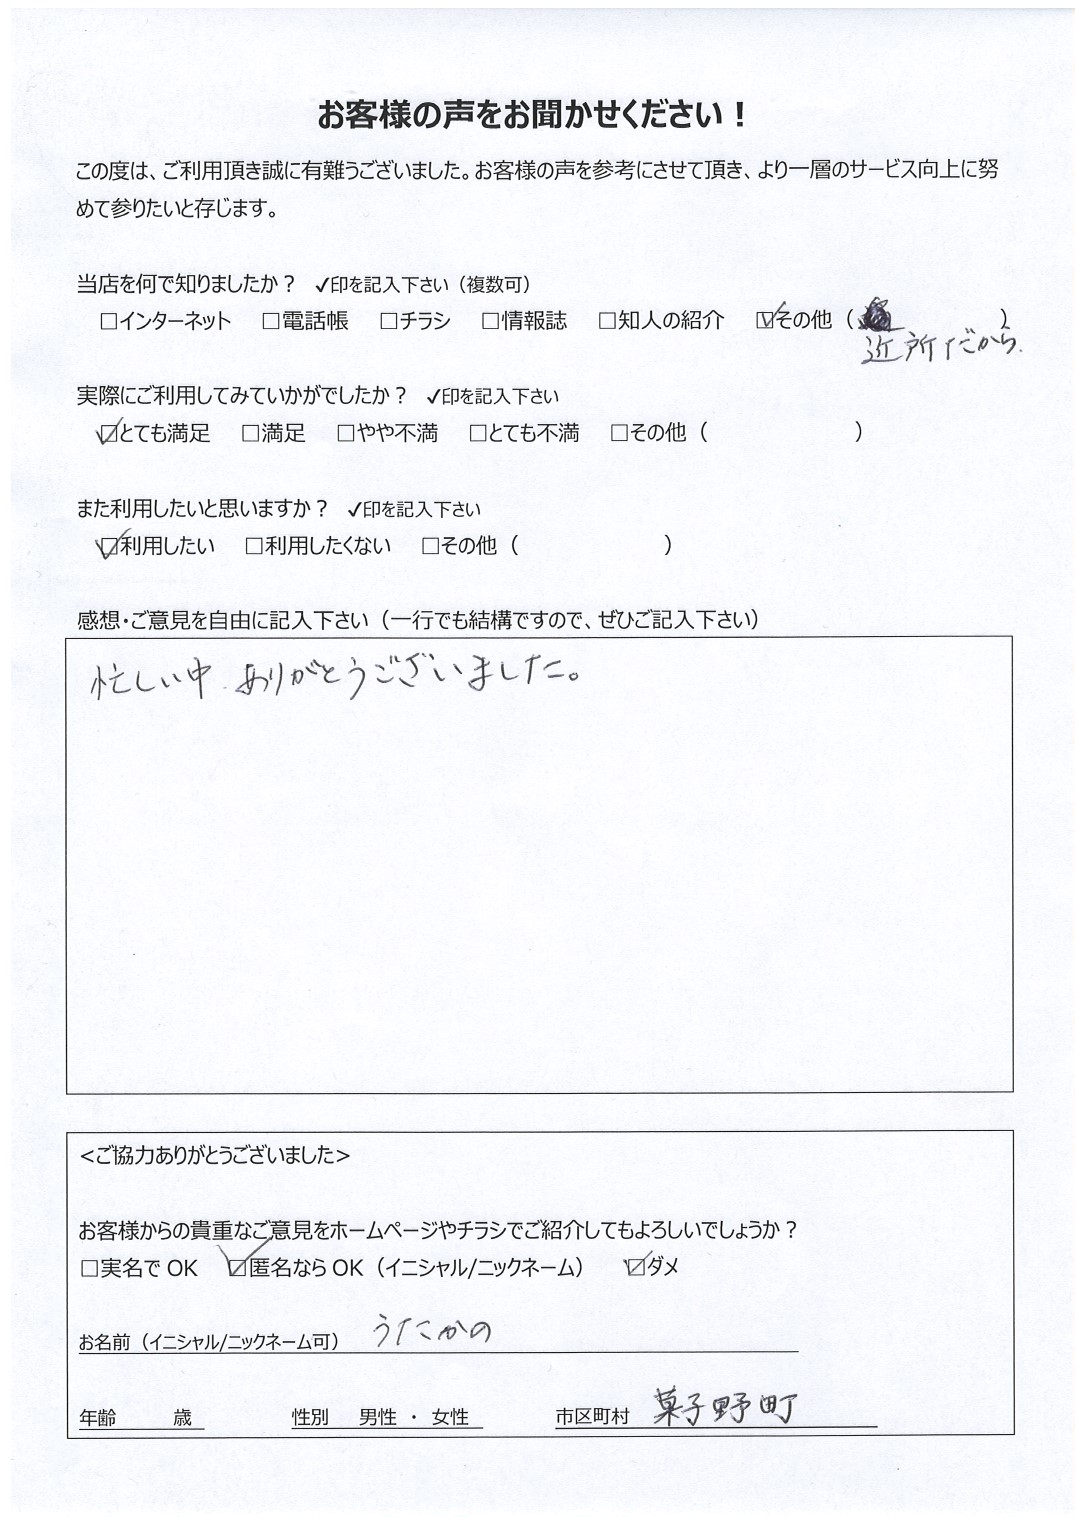 お客様の声をお聞かせください！
この度は、ご利用頂き誠に有難うございました。お客様の声を参考にさせて頂き、より一層のサービス向上に努
めて参りたいと存じます。
当店を何で知りましたか？ ✓印を記入下さい（複数可）
□インターネット □電話帳 □チラシ □情報誌 □知人の紹介 ☑その他（ ）
近所だから.
実際にご利用してみていかがでしたか？ ✓印を記入下さい
☑とても満足 □満足 □やや不満 □とても不満 □その他（ ）
また利用したいと思いますか？ ✓印を記入下さい
☑利用したい □利用したくない □その他（ ）
感想・ご意見を自由に記入下さい（一行でも結構ですので、ぜひご記入下さい）
忙しい中、ありがとうございました。
<ご協力ありがとうございました>
お客様からの貴重なご意見をホームページやチラシでご紹介してもよろしいでしょうか？
□実名で OK ☑匿名なら OK（イニシャル/ニックネーム） ☑ダメ
お名前（イニシャル/ニックネーム可） うたかの
年齢 歳 性別 男性 ・ 女性 市区町村 菓子野町